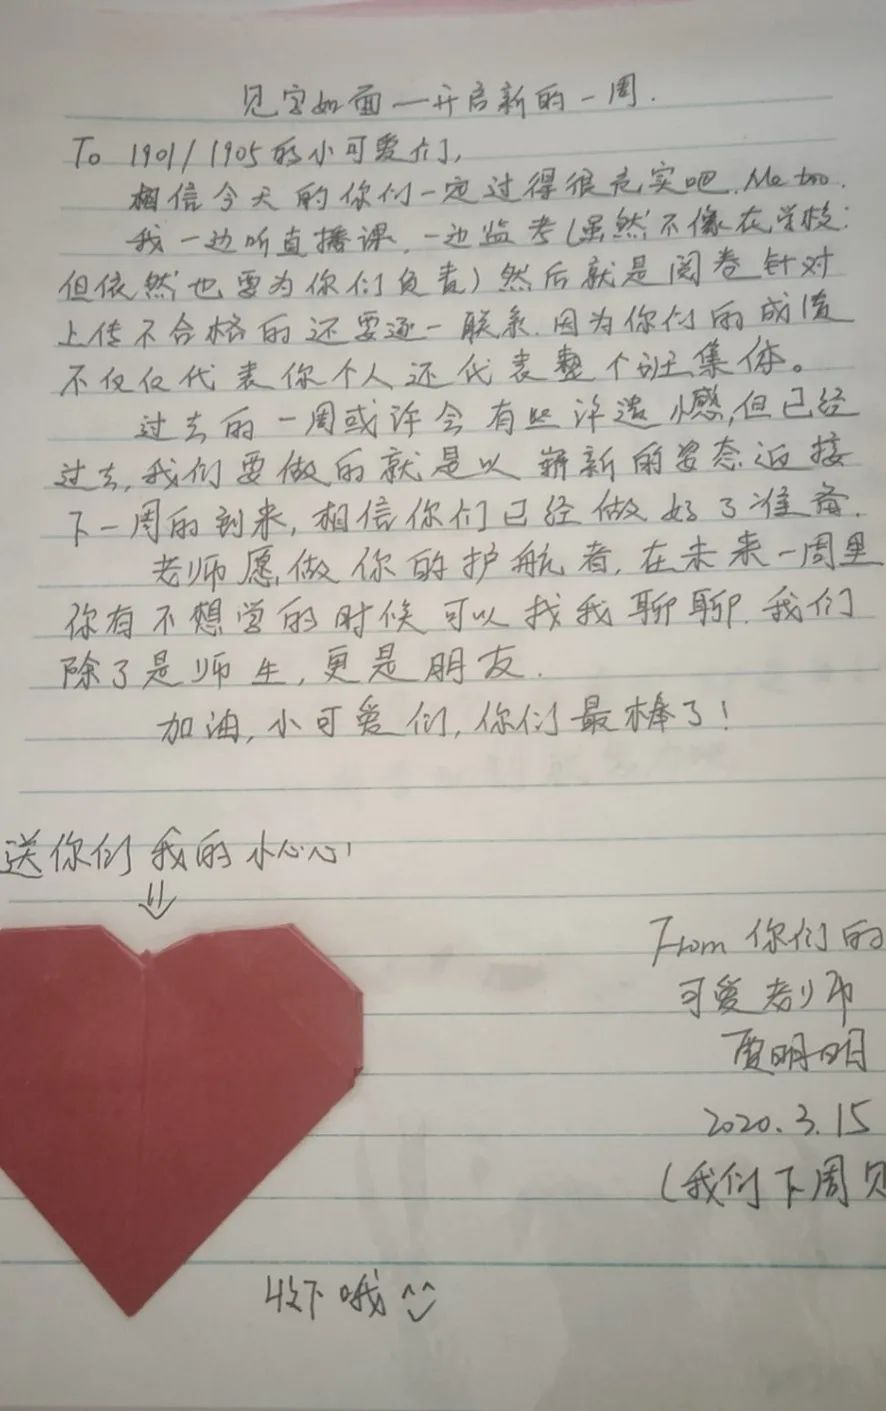 见字如面—开启新的一周.
To 1901/1905的小可爱们,
相信今天的你们一定过得很充实吧.Me too.
我一边听直播课,一边监考(虽然不像在学校:
但依然也要为你们负责)然后就是阅卷针对
上传不合格的还要逐一联系.因为你们的成绩
不仅仅代表你个人还代表整个班集体。
过去的一周或许会有些许遗憾,但已经
过去,我们要做的就是以崭新的姿态迎接
下一周的到来,相信你们已经做好了准备.
老师愿做你的护航者,在未来一周里
你有不想学的时候可以找我聊聊.我们
除了是师生,更是朋友.
加油,小可爱们,你们最棒了!
送你们我的小心心!
From 你们的
可爱老师
贾明明
2020.3.15
(我们下周见
收下哦^^